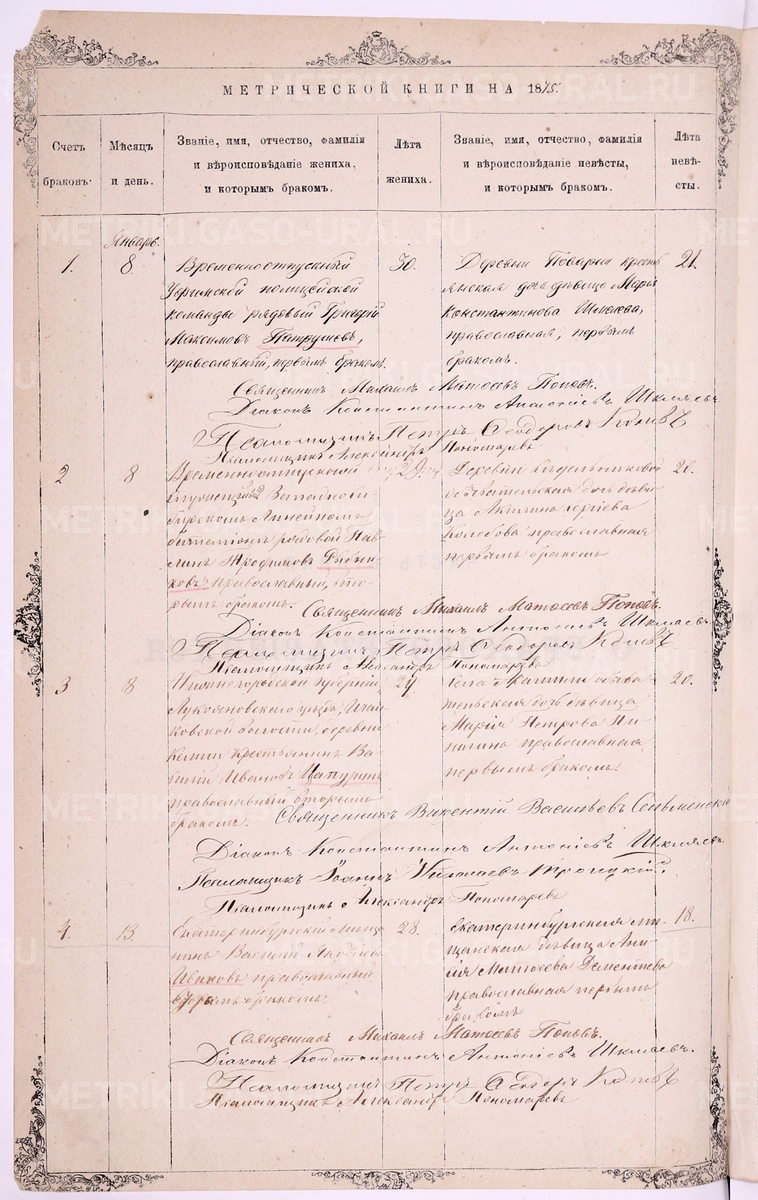 МЕТРИЧЕСКОЙ КНИГИ НА 1875.
Счетъ браковъ.
Мѣсяцъ и день.
Званіе, имя, отчество, фамилія
и вѣроисповѣданіе жениха,
и которымъ бракомъ.
Лѣта жениха.
Званіе, имя, отчество, фамилія
и вѣроисповѣданіе невѣсты,
и которымъ бракомъ.
Лѣта невѣ-
сты.
Январь.
1. 8
Временноотпускный
полицейской
команды рядовый Григорій
Максимовъ Патрушевъ,
православный, первымъ бракомъ.
30.
Деревни крестъ
янская дочь дѣвица
Константинова
православная, первымъ
бракомъ.
21.
Священникъ Михаилъ Матѳеевъ Поповъ.
Діаконъ Константинъ Антоніевъ Шкляевъ
Псаломщикъ Петръ Ѳеодоровъ
Псаломщикъ Александръ Пономаревъ
2 8
Временноотпускный
Линейномъ
баталіонѣ рядовой Пав-
линъ Трофимовъ
ковъ православный, вто-
рымъ бракомъ.
29.
Деревни
дочь дѣви-
ца Акилина
Колобова православная
первымъ бракомъ
20.
Священникъ Михаилъ Матѳеевъ Поповъ.
Діаконъ Константинъ Антоніевъ Шкляевъ
Псаломщикъ Петръ Ѳеодоровъ
Псаломщикъ Александръ Пономаревъ
3 8
Нижегородской губерніи
Лукояновскаго уѣзда,
ковской волости, деревни
крестьянинъ Ва-
силій Ивановъ Цапуринъ
православный вторымъ
бракомъ.
24
Села
дочь дѣвица
Марія Петрова
православная
первымъ бракомъ.
20.
Священникъ Викентій Васильевъ
Діаконъ Константинъ Антоніевъ Шкляевъ.
Псаломщикъ Іоаннъ Николаевъ Троицкій.
Псаломщикъ Александръ Пономаревъ
4. 13.
Екатеринбургскій мѣща
нинъ Василій Яковлевъ
Ивановъ православный
вторымъ бракомъ.
28.
Екатеринбургская мѣ-
щанская дѣвица
Матѳеева Дементьева
православная первымъ
бракомъ
18.
Священникъ Михаилъ Матѳеевъ Поповъ.
Діаконъ Константинъ Антоніевъ Шкляевъ.
Псаломщикъ Петръ Ѳеодоръ
Псаломщикъ Александръ Пономаревъ
METRIKI.GASO-URAL.RU